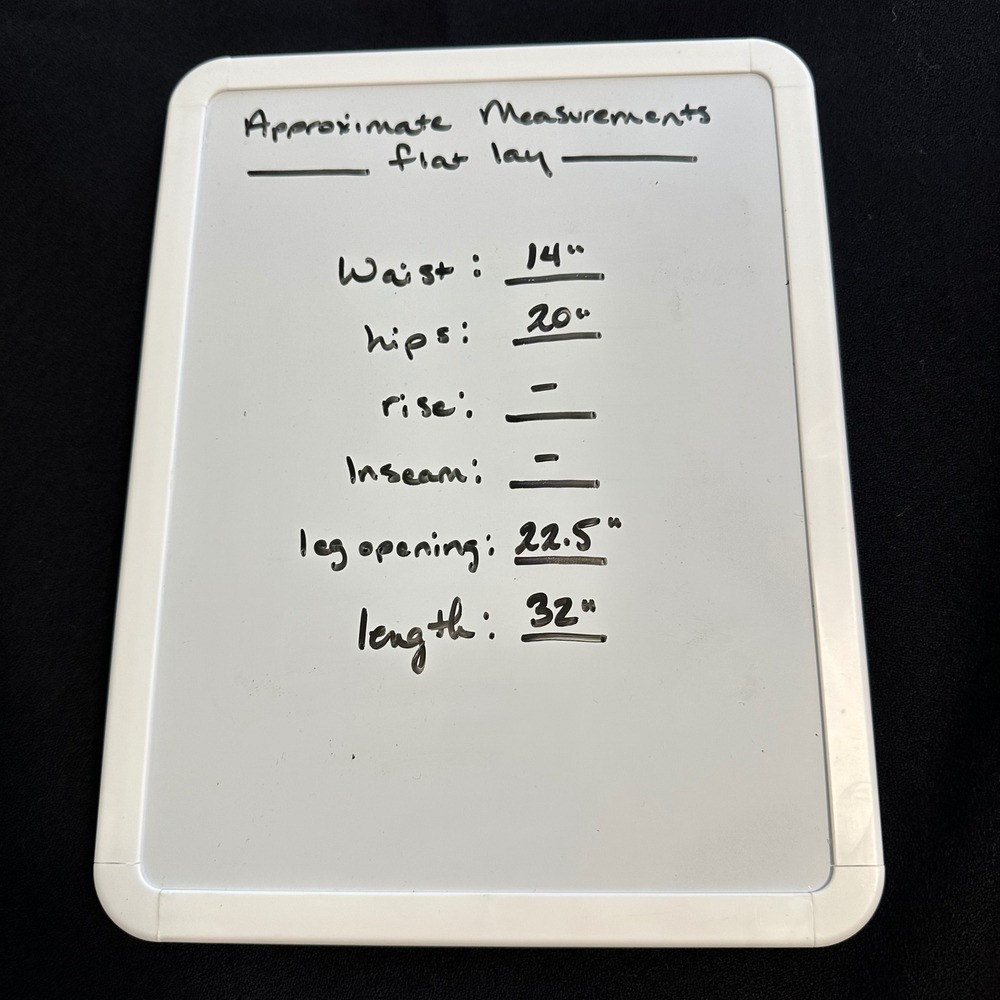 Approximate Measurements
flat lay
Waist: 14"
hips: 20"
rise: -
Inseam: -
leg opening: 22.5"
length: 32"